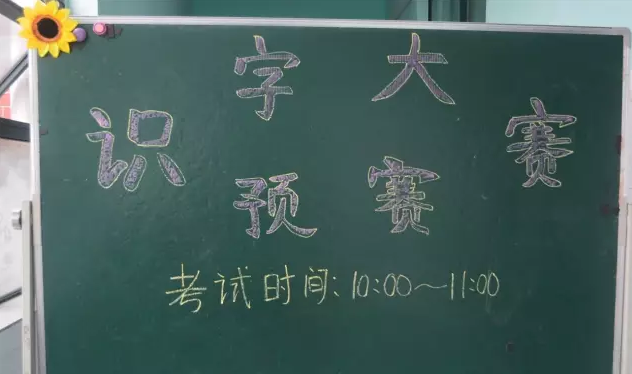 识字大赛
预赛
考试时间:10:00~11:00